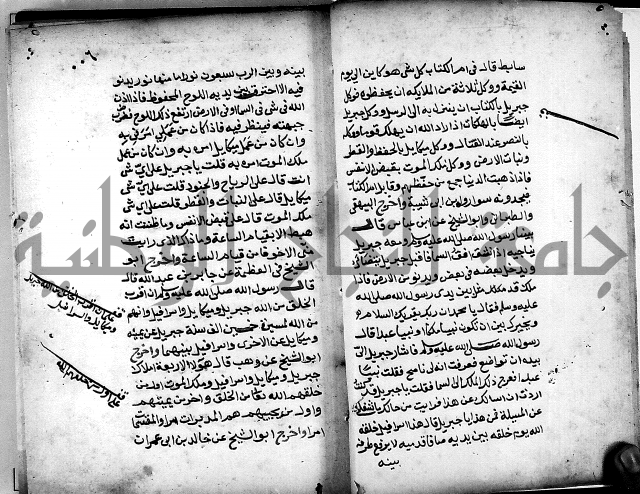 سابط قال في ام الكتاب كل شي هو كاين الى يوم
القيمة ووكل ثلاثة من الملايكة ان يحفظوه فوكل
جبريل بالكتاب ان ينزل به الى الرسل ووكل جبريل
ايضا بالهلكات اذا اراد الله ان يهلك قوما ووكله
بالنصر عند القتال ووكل ميكايل بالحفظ والقطر
ونبات الارض ووكل ملك الموت بقبض الانفس
فاذا ذهبت الدنيا جمع بين حفظهم وقابل ام الكتاب
فيجدونه سوا واخرج ابن ابي شيبة واخرج البيهقي
والطبراني وابو الشيخ عن ابن عباس قال
بينا رسول الله صلى الله عليه وسلم ومعه جبريل
يناجيه اذ انشق افق السما فاقبل جبريل يتضال
ويدخل بعضه في بعض ويدنو من الارض فاذا
ملك قد مثل بين يدي رسول الله صلى الله
عليه وسلم فقال يا محمد ان ربك يقريك السلام
ويخيرك بين ان تكون نبيا ملكا او نبيا عبدا قال
رسول الله صلى الله عليه وسلم فاشار جبريل الي
بيده ان تواضع فعرفت انه لي ناصح فقلت نبيا
عبدا فعرج ذلك الملك الى السما فقلت يا جبريل قد
اردت ان اسالك عن هذا فرايت من حالك ما شغلني
عن المسيلة فمن هذا يا جبريل قال هذا اسرافيل خلقه
الله يوم خلقه بين يديه صافا قدميه لا يرفع طرفه
بينه
بينه وبين الرب سبعون نورا ما منها نور يدنو
فيه الا احترق بين يديه اللوح المحفوظ فاذا اذن
الله في شي في السما او في الارض ارتفع ذلك اللوح فضرب
جبهته فينظر فيه فاذا كان من عملي امرني به
وان كان من عمل ميكايل امره به وان كان من عمل
ملك الموت امره به قلت يا جبريل على اي شي
انت قال على الرياح والجنود قلت على اي شي
ميكايل قال على النبات والقطر قلت على اي شي
ملك الموت قال على قبض الانفس وما ظننت انه
هبط الا بقيام الساعة وما ذاك الذي رايت
مني الا خوفا من قيام الساعة واخرج ابو
الشيخ في العظمة عن جابر بن عبد الله قال
قال رسول الله صلى الله عليه وسلم ان اقرب
الخلق من الله جبريل وميكايل واسرافيل وانهم
من الله لمسيرة خمسين الف سنة جبريل عن يمينه
وميكايل عن الاخرى واسرافيل بينهما واخرج
ابو الشيخ عن وهب قال هولا الاربعة املاك
جبريل وميكايل واسرافيل وملك الموت اول من
خلقهم الله من الخلق واخر من يميتهم
واول من يحييهم هم المدبرات امرا والمقسمات
امرا واخرج ابو الشيخ عن خالد بن ابي عمران
جامعة النجاح الوطنية